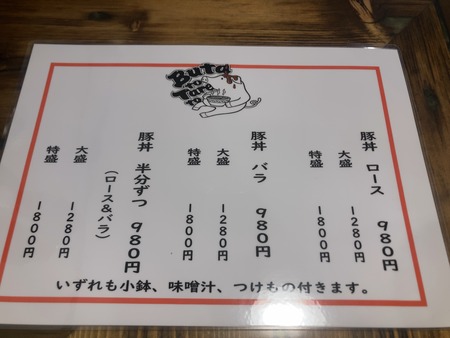 Buta
to
Tare
to
豚丼 ロース 980円
大盛 1280円
特盛 1800円
豚丼 バラ 980円
大盛 1280円
特盛 1800円
豚丼 半分ずつ 980円
(ロース&バラ)
大盛 1280円
特盛 1800円
いずれも小鉢、味噌汁、つけもの付きます。